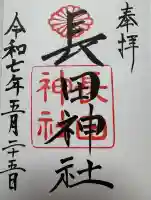 奉拝
長田神社
長田神社
令和七年五月二十五日